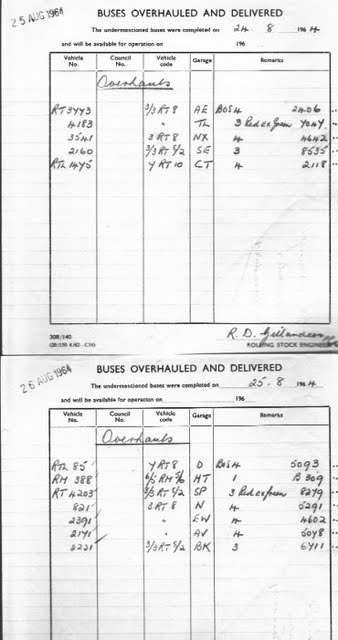 25 AUG 1964
BUSES OVERHAULED AND DELIVERED
The undermentioned buses were completed on 24. 8 1964
and will be available for operation on 196
Vehicle No. Council No. Vehicle code Garage Remarks
Overhauls
RT 3443 3/3 RT 8 AE BOS 4 2406
4183 " TL 3 Red ex Green 4047
3541 3 RT 8 NX 4 4642
2160 3/3 RT 5/2 SE 3 8535
RTL 1475 4 RT 10 CT 4 2118
308/140
R. D. Gillanders
ROLLING STOCK ENGINEER
26 AUG 1964
BUSES OVERHAULED AND DELIVERED
The undermentioned buses were completed on 25. 8 1964
and will be available for operation on 196
Vehicle No. Council No. Vehicle code Garage Remarks
Overhauls
RTL 85 4 RT 8 D BOS 4 5093
RM 388 6/5 RM 5/6 HT 1 B 509
RT 4203 3/3 RT 5/2 SP 3 Red ex green 8279
821 3 RT 8 N 4 5291
2391 " EW 4 4602
2141 " AV 4 5048
2221 3/3 RT 5/2 BK 3 6411